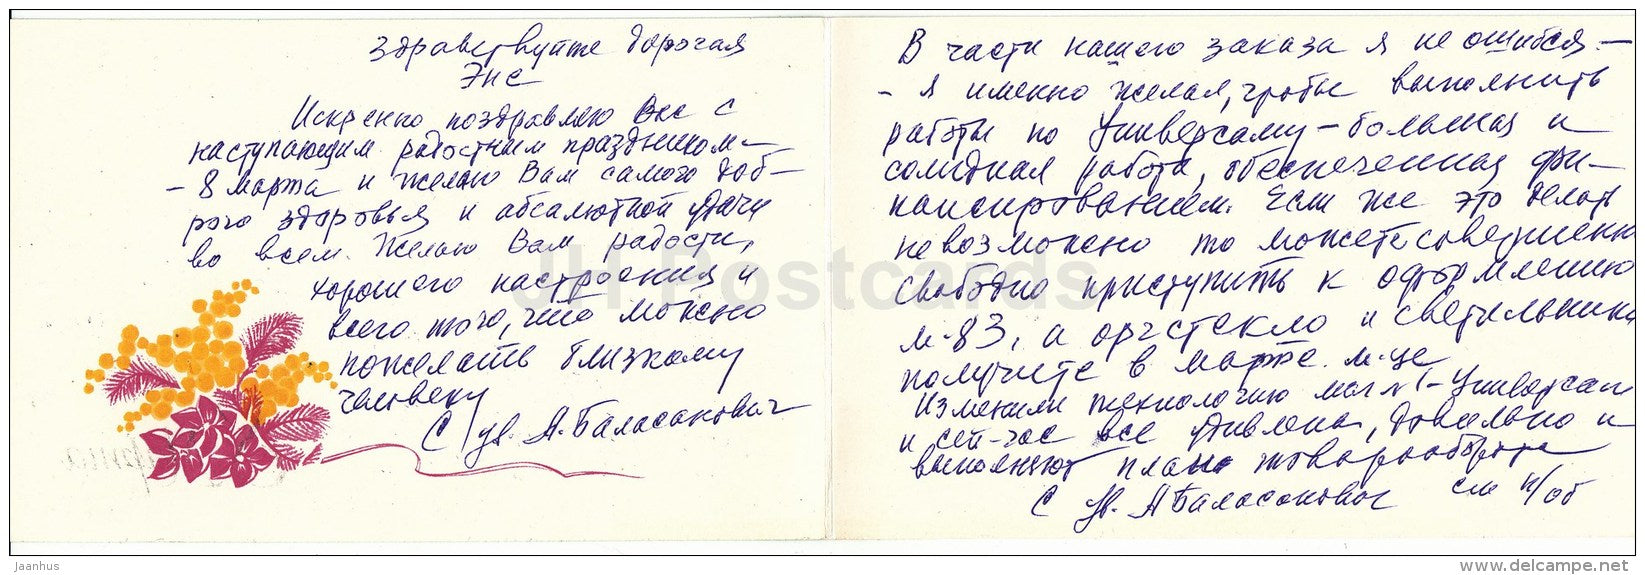 Здравствуйте дорогая
Энс
Искренно поздравляю Вас с
наступающим радостным праздником –
– 8 марта и желаю Вам самого доб–
рого здоровья и абсалютной удачи
во всем. Желаю Вам радости,
хорошего настроения и
всего того, что можно
пожелать близкому
человеку
С ув. А. Баласанович
В части нашего заказа я не ошибся –
– я именно желал, чтобы выполнить
работы по Универсаму – большая и
солидная работа, обеспеченная фи–
нансированием. Если же это делать
невозможно то можете совершенно
свободно приступить к оформлению
м-83, а оргстекло и светильники
получите в марте м-це
Изменили технологию маг №1 – Универсам
и сей-час все удивлены, довольно и
выполняют план товарооборота
С ув. А Баласанович см н/об
JH Postcards
jaanhus
delcampe.net